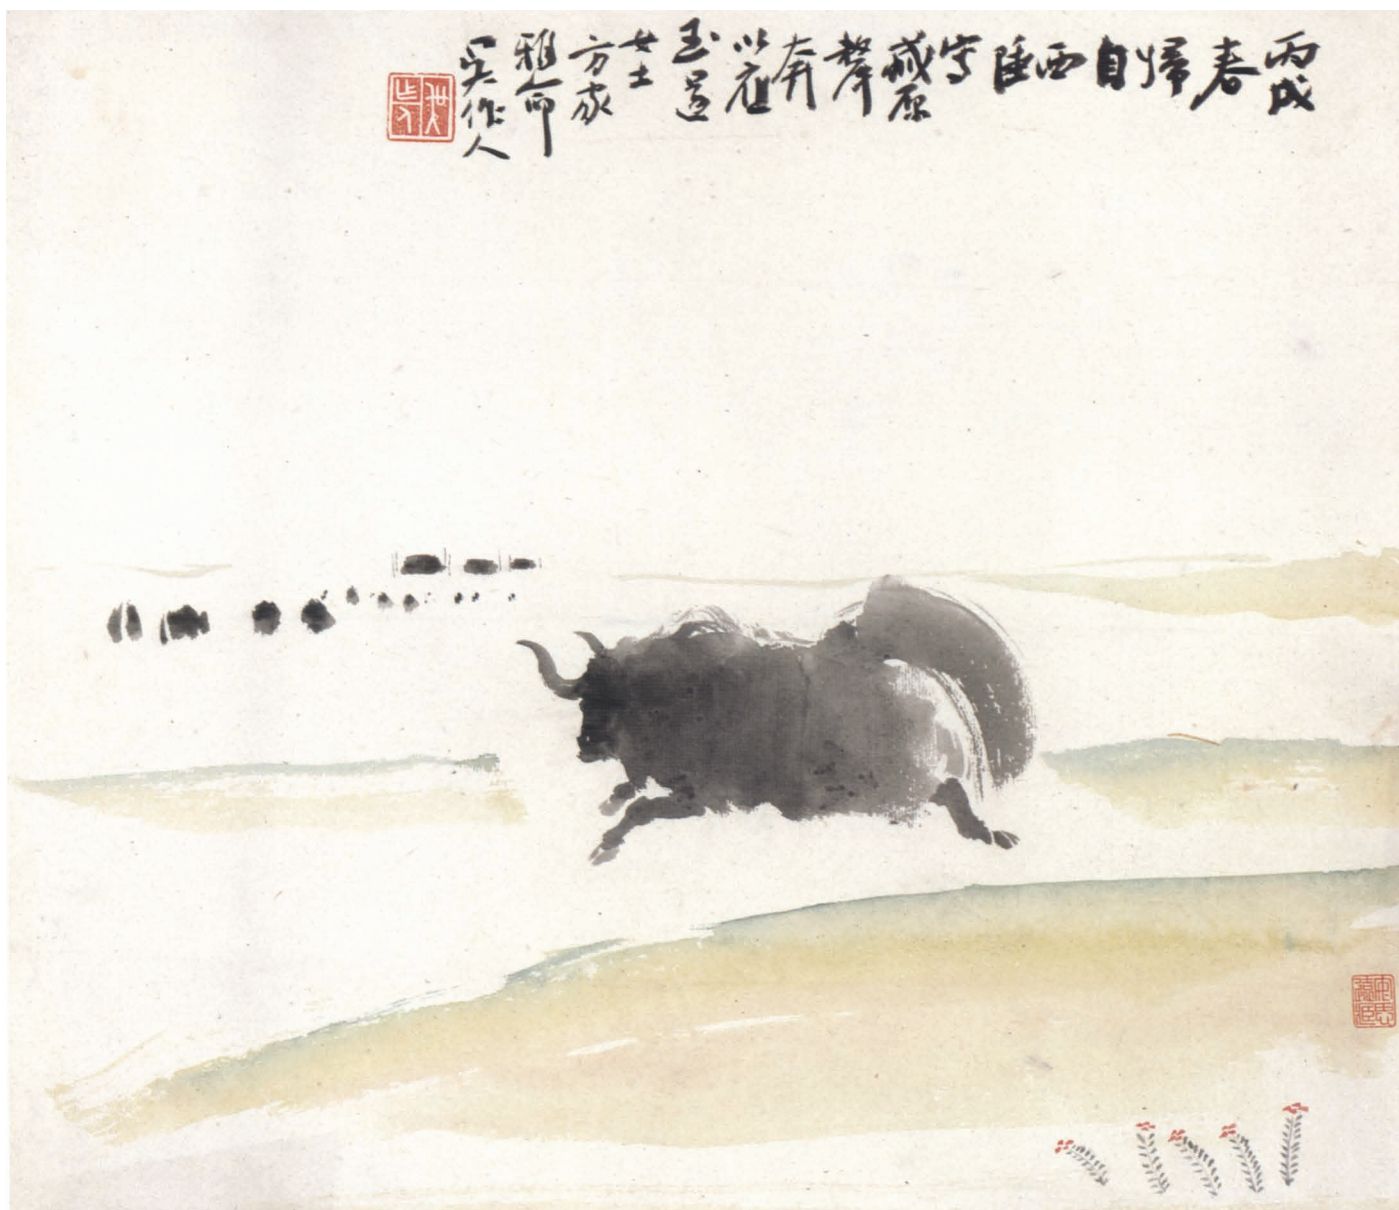 丙戌
春
歸
自
西
陲
写
藏原
犛
奔
以應
玉
女士
方家
雅命
吴作人